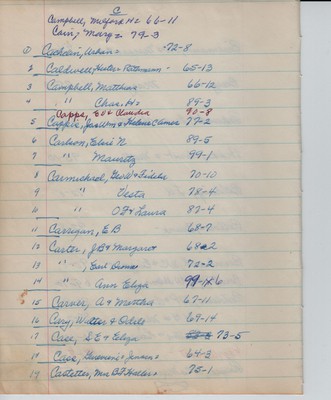 C
Campbell, Milford H= 66-11
Cain, Mary= 79-3
1 Urban= -72-8
2 Caldwell, Hester - 65-13
3 Campbell, Matthew 66-12
4 " Chas. H= 89-3
Capps, Ed & Claudia 90-8
5 Capps, Jas Wm & Helena 77-2
6 Carlson, Elsie N 89-5
7 " Mauritz 99-1
8 Carmichael, Geo W & 70-10
9 " Vesta 78-4
10 " O F & Laura 87-4
11 Carrigan, E B 68-7
12 Carter, J B & Margaret 68-2
13 ", Earl 72-2
14 " Ann Eliza 99-1
15 Carver, A & Mertha 67-11
16 Cary, Walter & Odele 69-14
17 Case, S E & Eliza 73-5
18 Case, Genevieve & 64-3
19 Castetter, Mrs B F 75-1